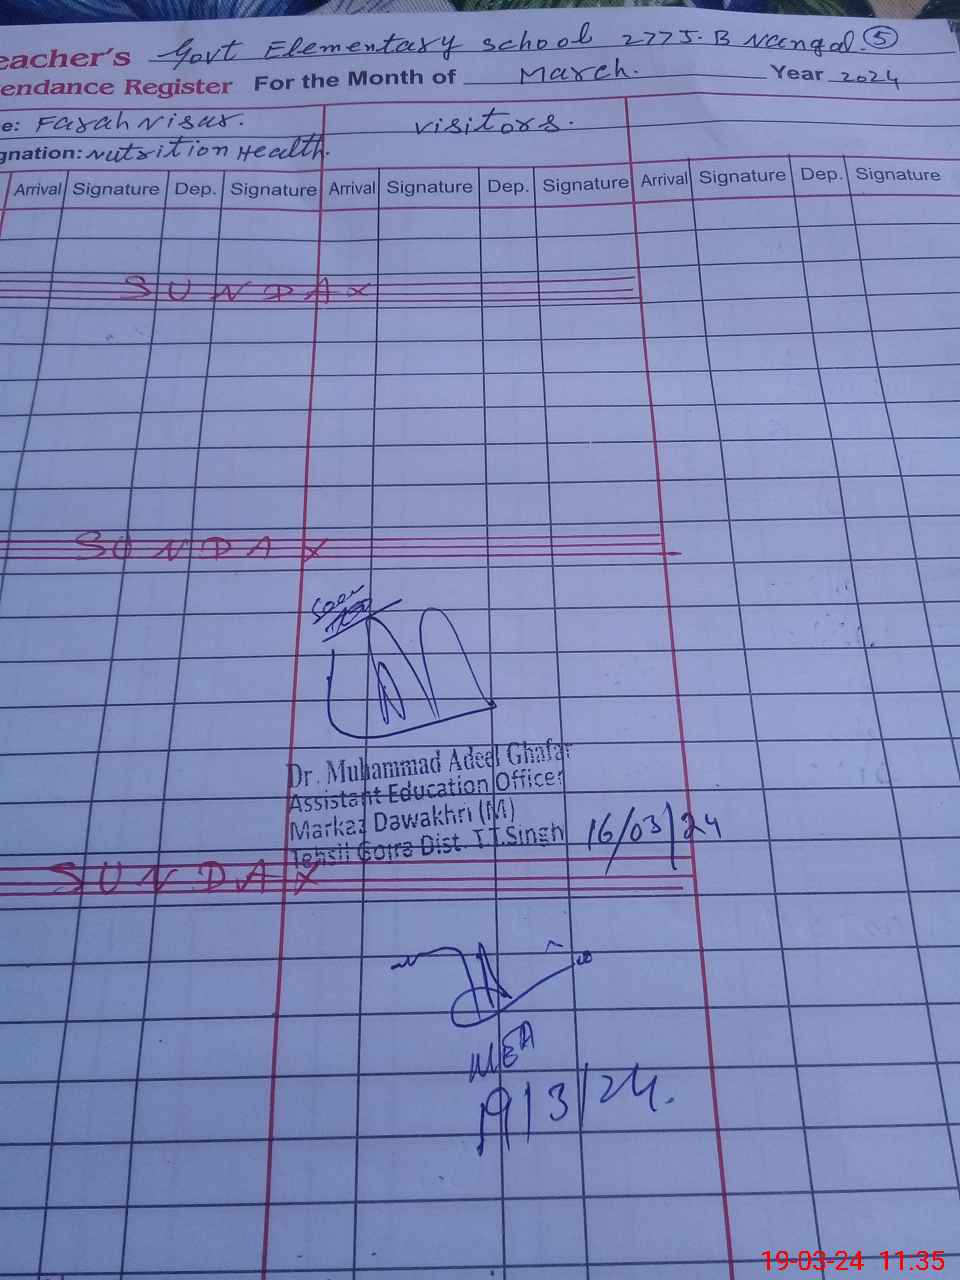 eacher's Govt Elementary school 277J.B Nangal. 5
endance Register For the Month of March. Year 2024
e: Farah Nisar. visitors.
gnation: Nutrition Health.
Arrival Signature Dep. Signature Arrival Signature Dep. Signature Arrival Signature Dep. Signature
SUNDAY
SUNDAY
Seen
Dr. Muhammad Adeel Ghafar
Assistant Education Officer
Markaz Dawakhri (M)
Tehsil Gojra Dist. T.T.Singh 16/03/24
SUNDAY
MEA
19/3/24.
19-03-24 11.35